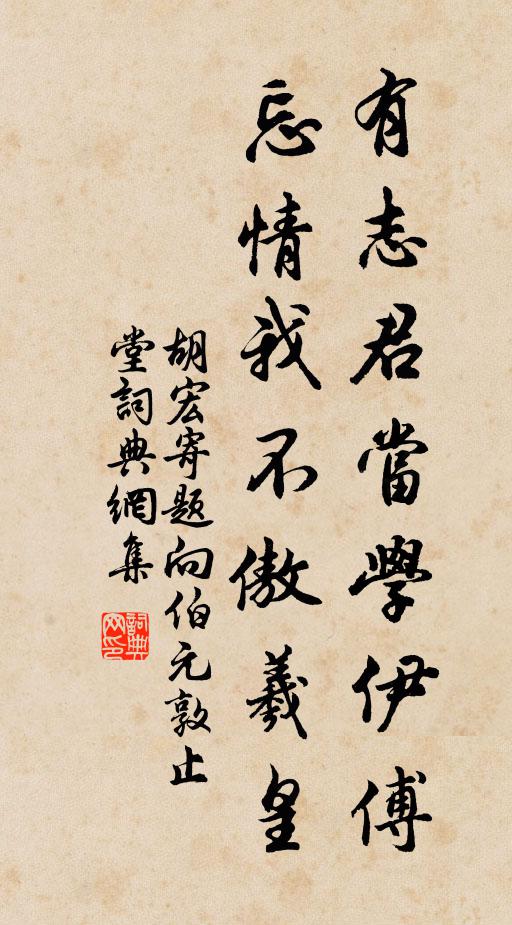 有志君當學伊傅
忘情我不傲羲皇
胡宏寄题向伯元敦止
堂詞典網集
詞典网印